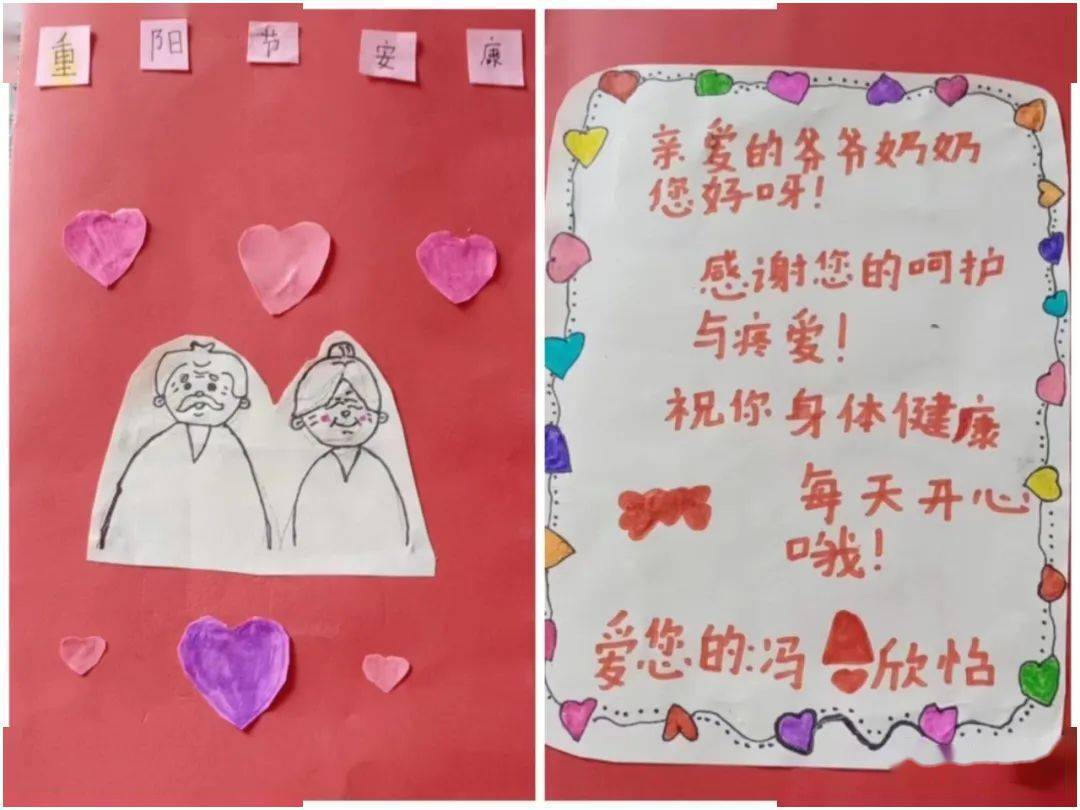 重阳节安康
亲爱的爷爷奶奶
您好呀！
感谢您的呵护
与疼爱！
祝你身体健康
每天开心
哦！
爱您的：冯欣怡